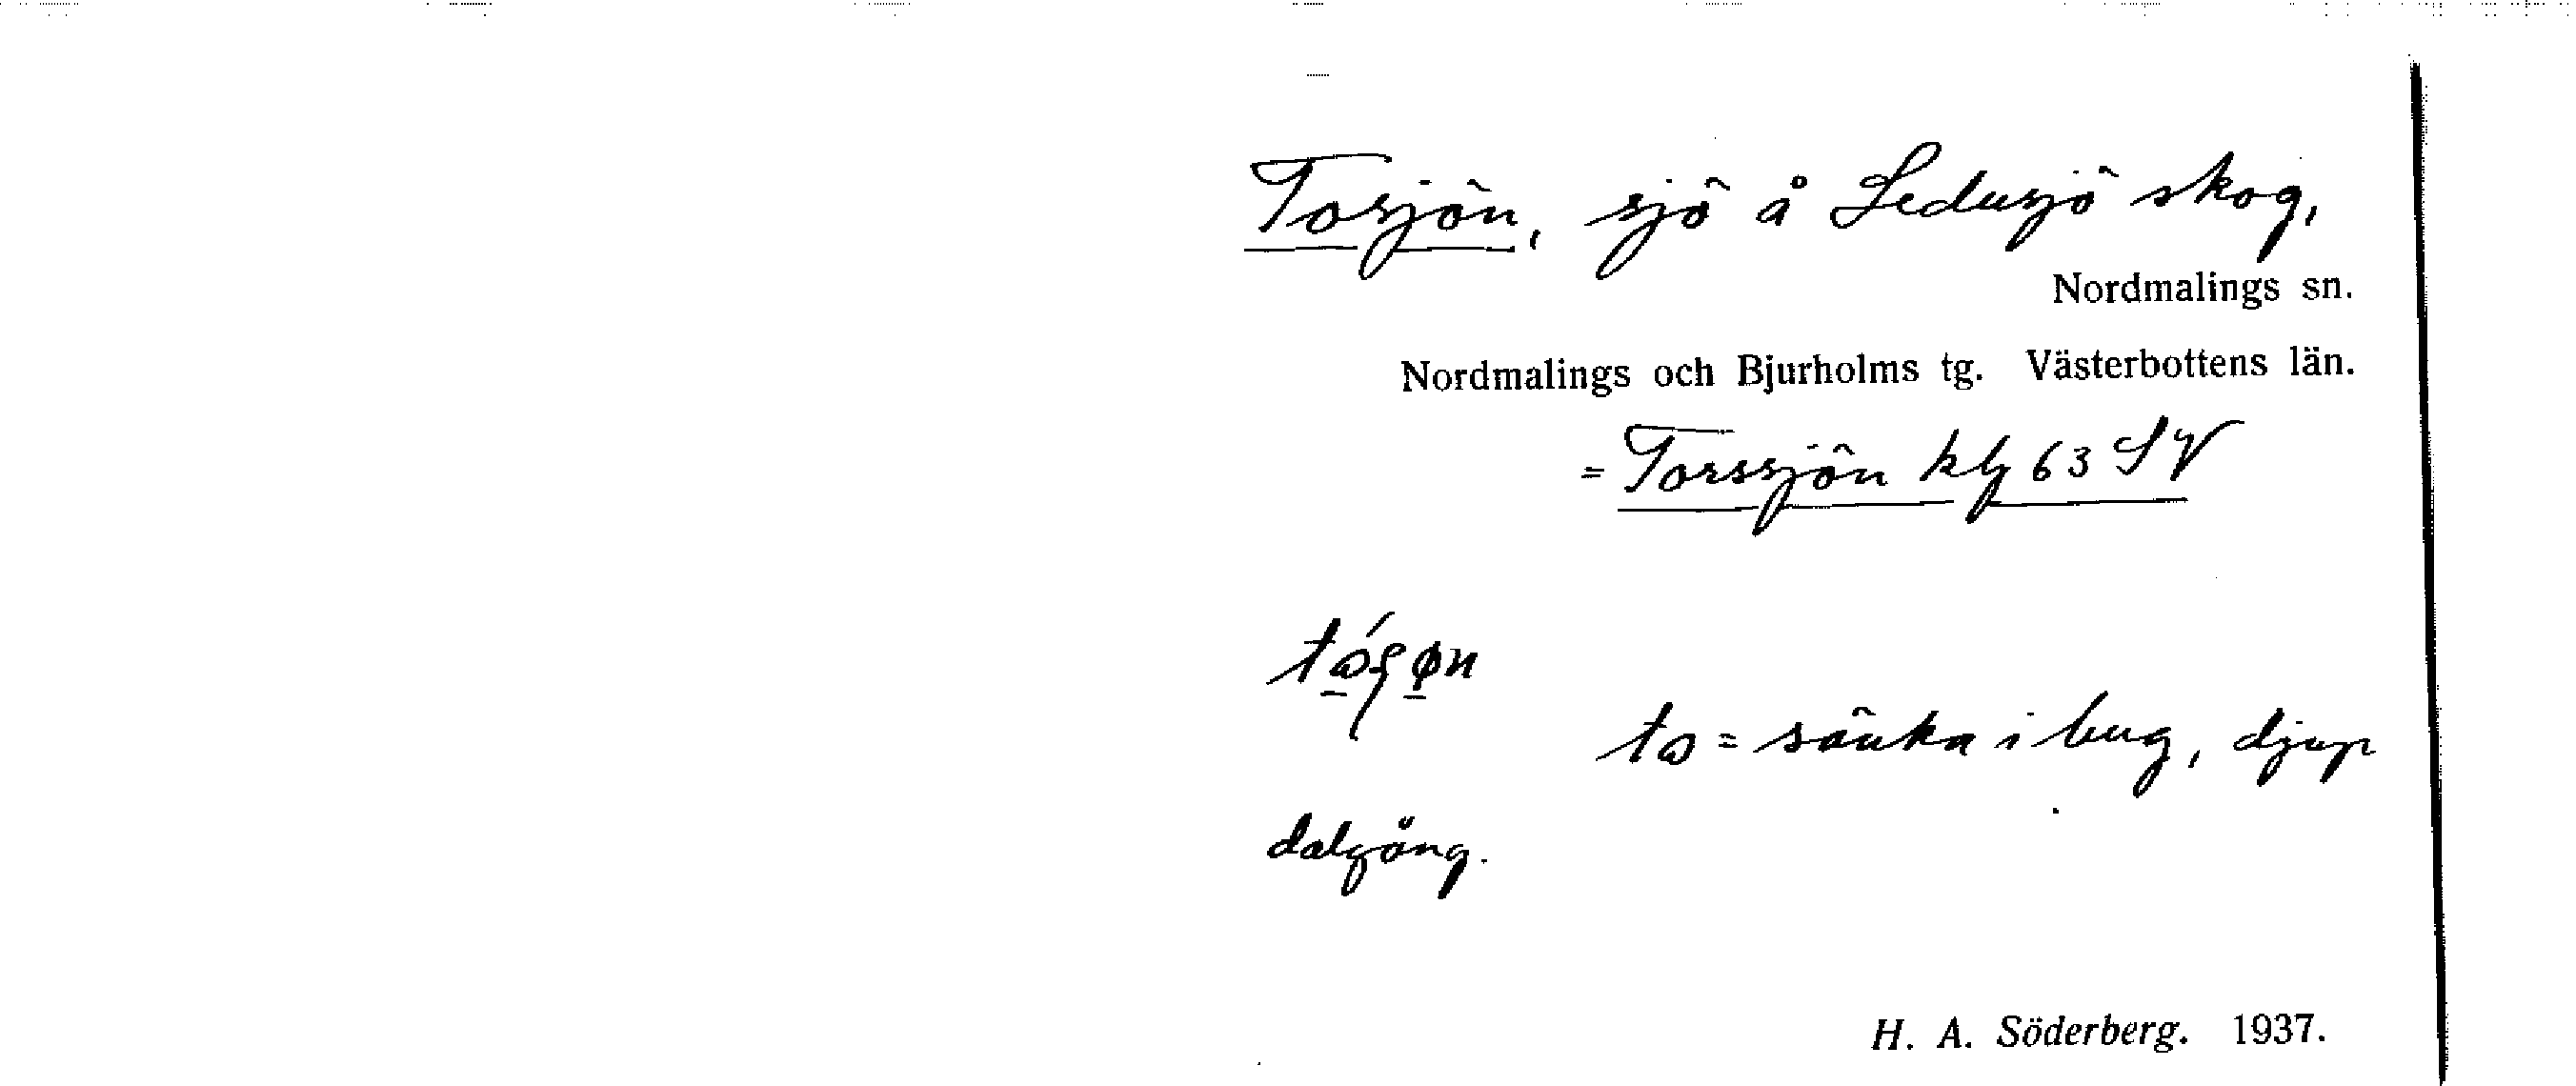 Tosjön, sjö å Ledusjö skog,
Nordmalings sn.
Nordmalings och Bjurholms tg. Västerbottens län.
= Torssjön kbl 63 SV
to = sänka i berg, djup
dalgång.
H. A. Söderberg. 1937.